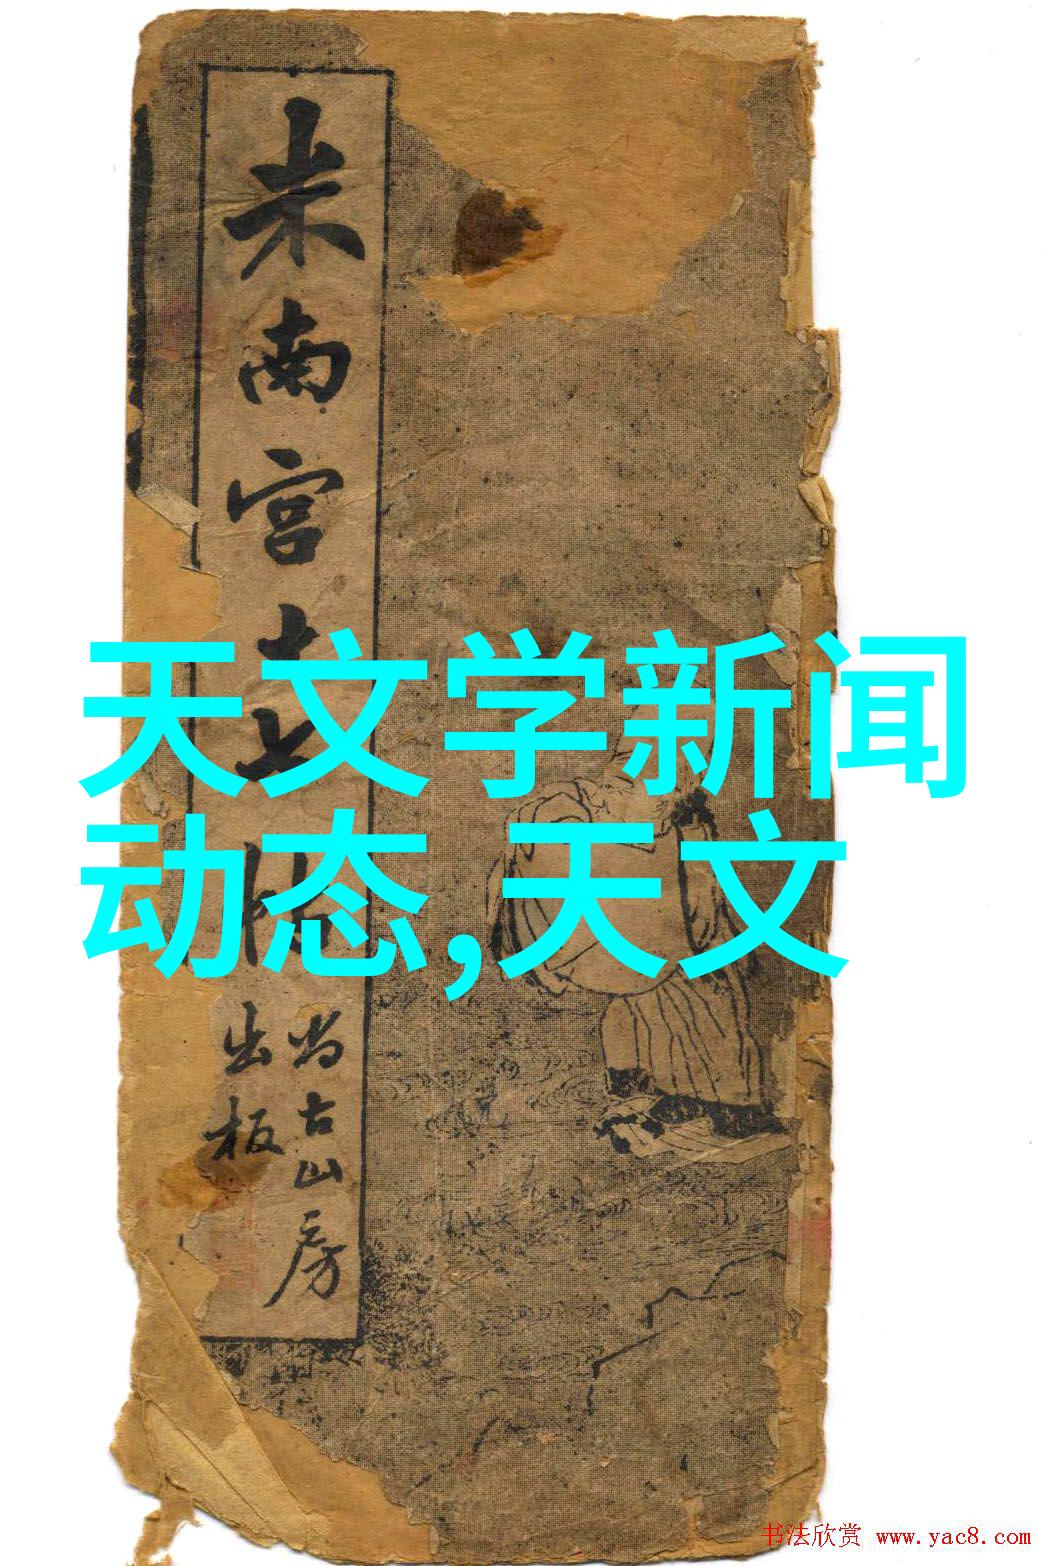 米南宫十七帖
尚古山房
出板
天文学新闻
动态,天文
书法欣赏 www.yac8.com